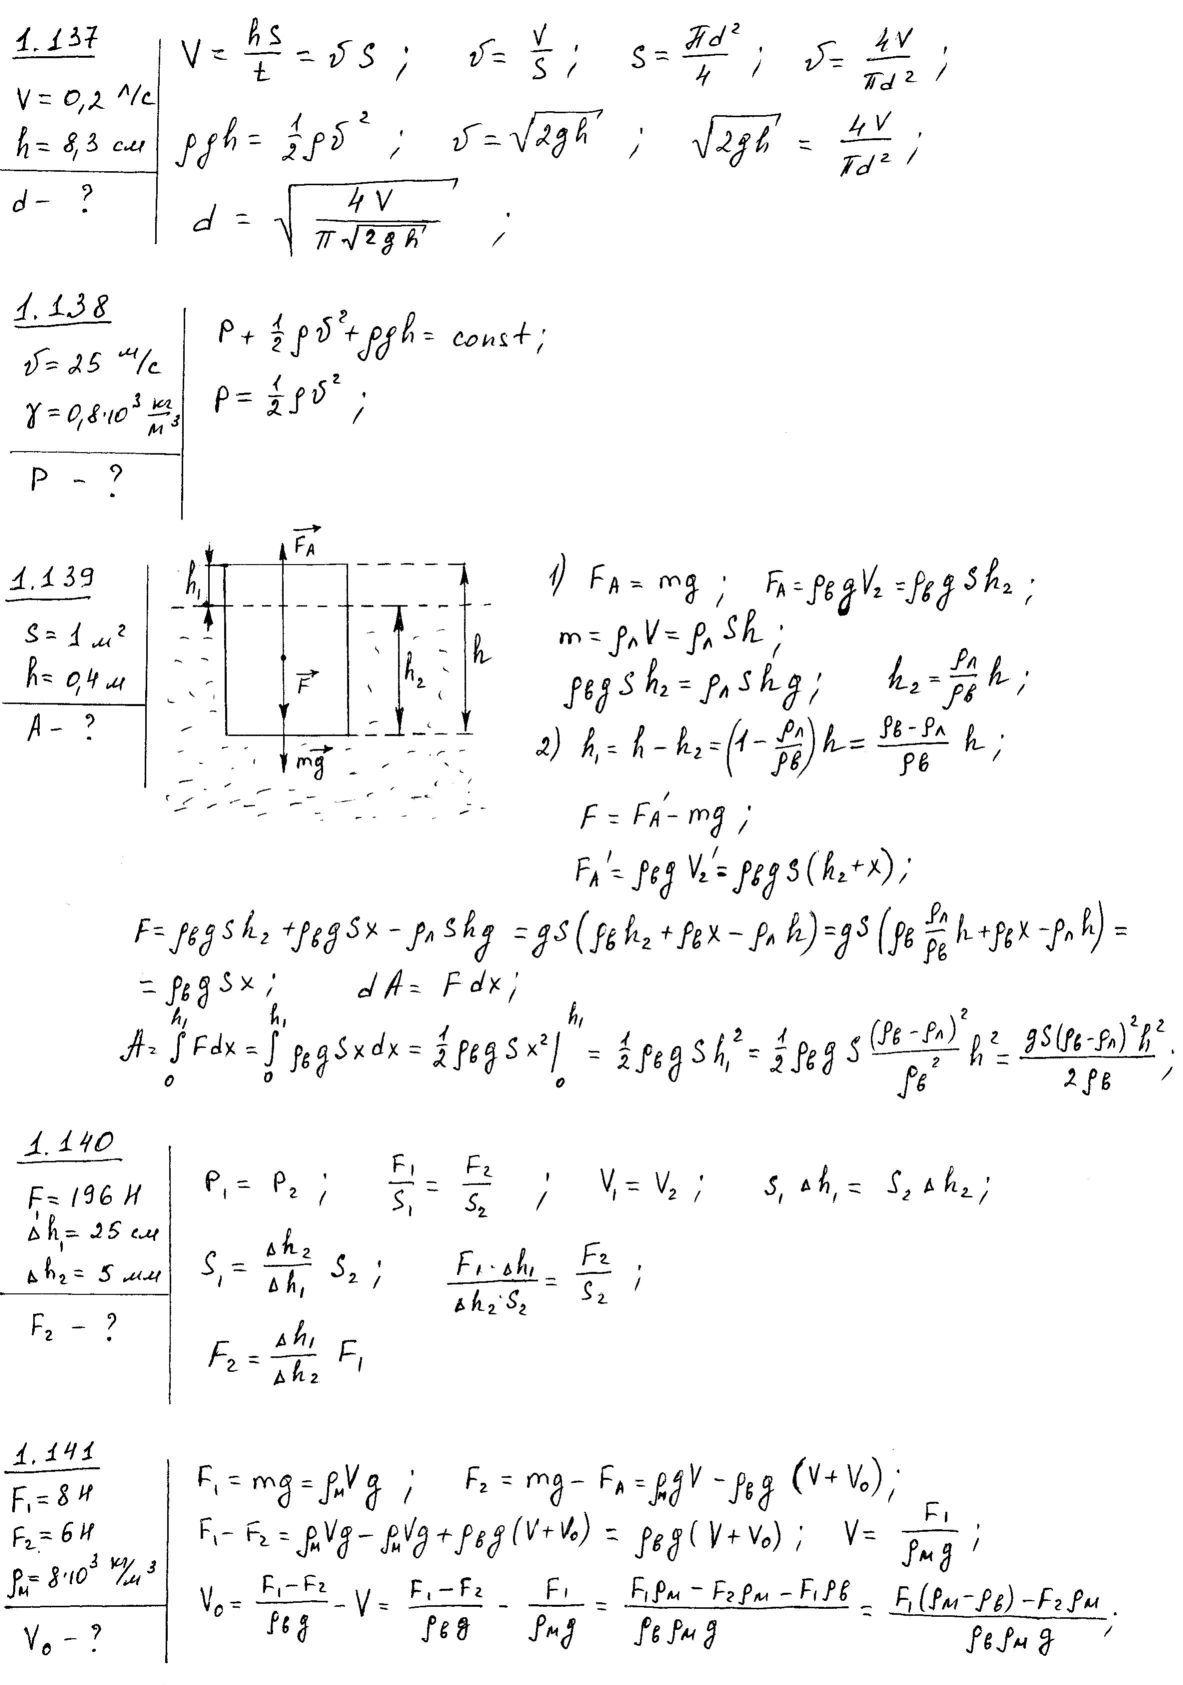 1.137
V = 0,2 л/с
h = 8,3 см
d - ?
V = hS/t = υS ; υ = V/S ; S = πd²/4 ; υ = 4V/πd² ;
ρgh = 1/2 ρυ² ; υ = √2gh ; √2gh = 4V/πd² ;
d = √(4V/(π√2gh)) ;
1.138
υ = 25 м/с
γ = 0,8·10³ кг/м³
P - ?
P + 1/2 ρυ² + ρgh = const ;
P = 1/2 ρυ² ;
1.139
S = 1 м²
h = 0,4 м
A - ?
F_A
h₁
h₂
h
F
mg
1) F_A = mg ; F_A = ρвgV₂ = ρвgSh₂ ;
m = ρлV = ρлSh ;
ρвgSh₂ = ρлShg ; h₂ = ρл/ρв h ;
2) h₁ = h - h₂ = (1 - ρл/ρв)h = (ρв - ρл)/ρв h ;
F = F_A' - mg ;
F_A' = ρвgV₂' = ρвgS(h₂ + x) ;
F = ρвgSh₂ + ρвgSx - ρлShg = gS(ρвh₂ + ρвx - ρлh) = gS(ρв ρл/ρв h + ρвx - ρлh) =
= ρвgSx ; dA = Fdx ;
A = ∫₀^h₁ Fdx = ∫₀^h₁ ρвgSxdx = 1/2 ρвgSx² |₀^h₁ = 1/2 ρвgSh₁² = 1/2 ρвgS (ρв - ρл)²/ρв² h² = gS(ρв - ρл)²h²/2ρв ;
1.140
F₁ = 196 Н
Δh₁ = 25 см
Δh₂ = 5 мм
F₂ - ?
P₁ = P₂ ; F₁/S₁ = F₂/S₂ ; V₁ = V₂ ; S₁Δh₁ = S₂Δh₂ ;
S₁ = Δh₂/Δh₁ S₂ ; F₁·Δh₁/Δh₂·S₂ = F₂/S₂ ;
F₂ = Δh₁/Δh₂ F₁
1.141
F₁ = 8 Н
F₂ = 6 Н
ρм = 8·10³ кг/м³
V₀ - ?
F₁ = mg = ρмVg ; F₂ = mg - F_A = ρмgV - ρвg (V + V₀) ;
F₁ - F₂ = ρмVg - ρмVg + ρвg(V + V₀) = ρвg(V + V₀) ; V = F₁/ρмg ;
V₀ = (F₁ - F₂)/ρвg - V = (F₁ - F₂)/ρвg - F₁/ρмg = (F₁ρм - F₂ρм - F₁ρв)/ρвρмg = (F₁(ρм - ρв) - F₂ρм)/ρвρмg ;